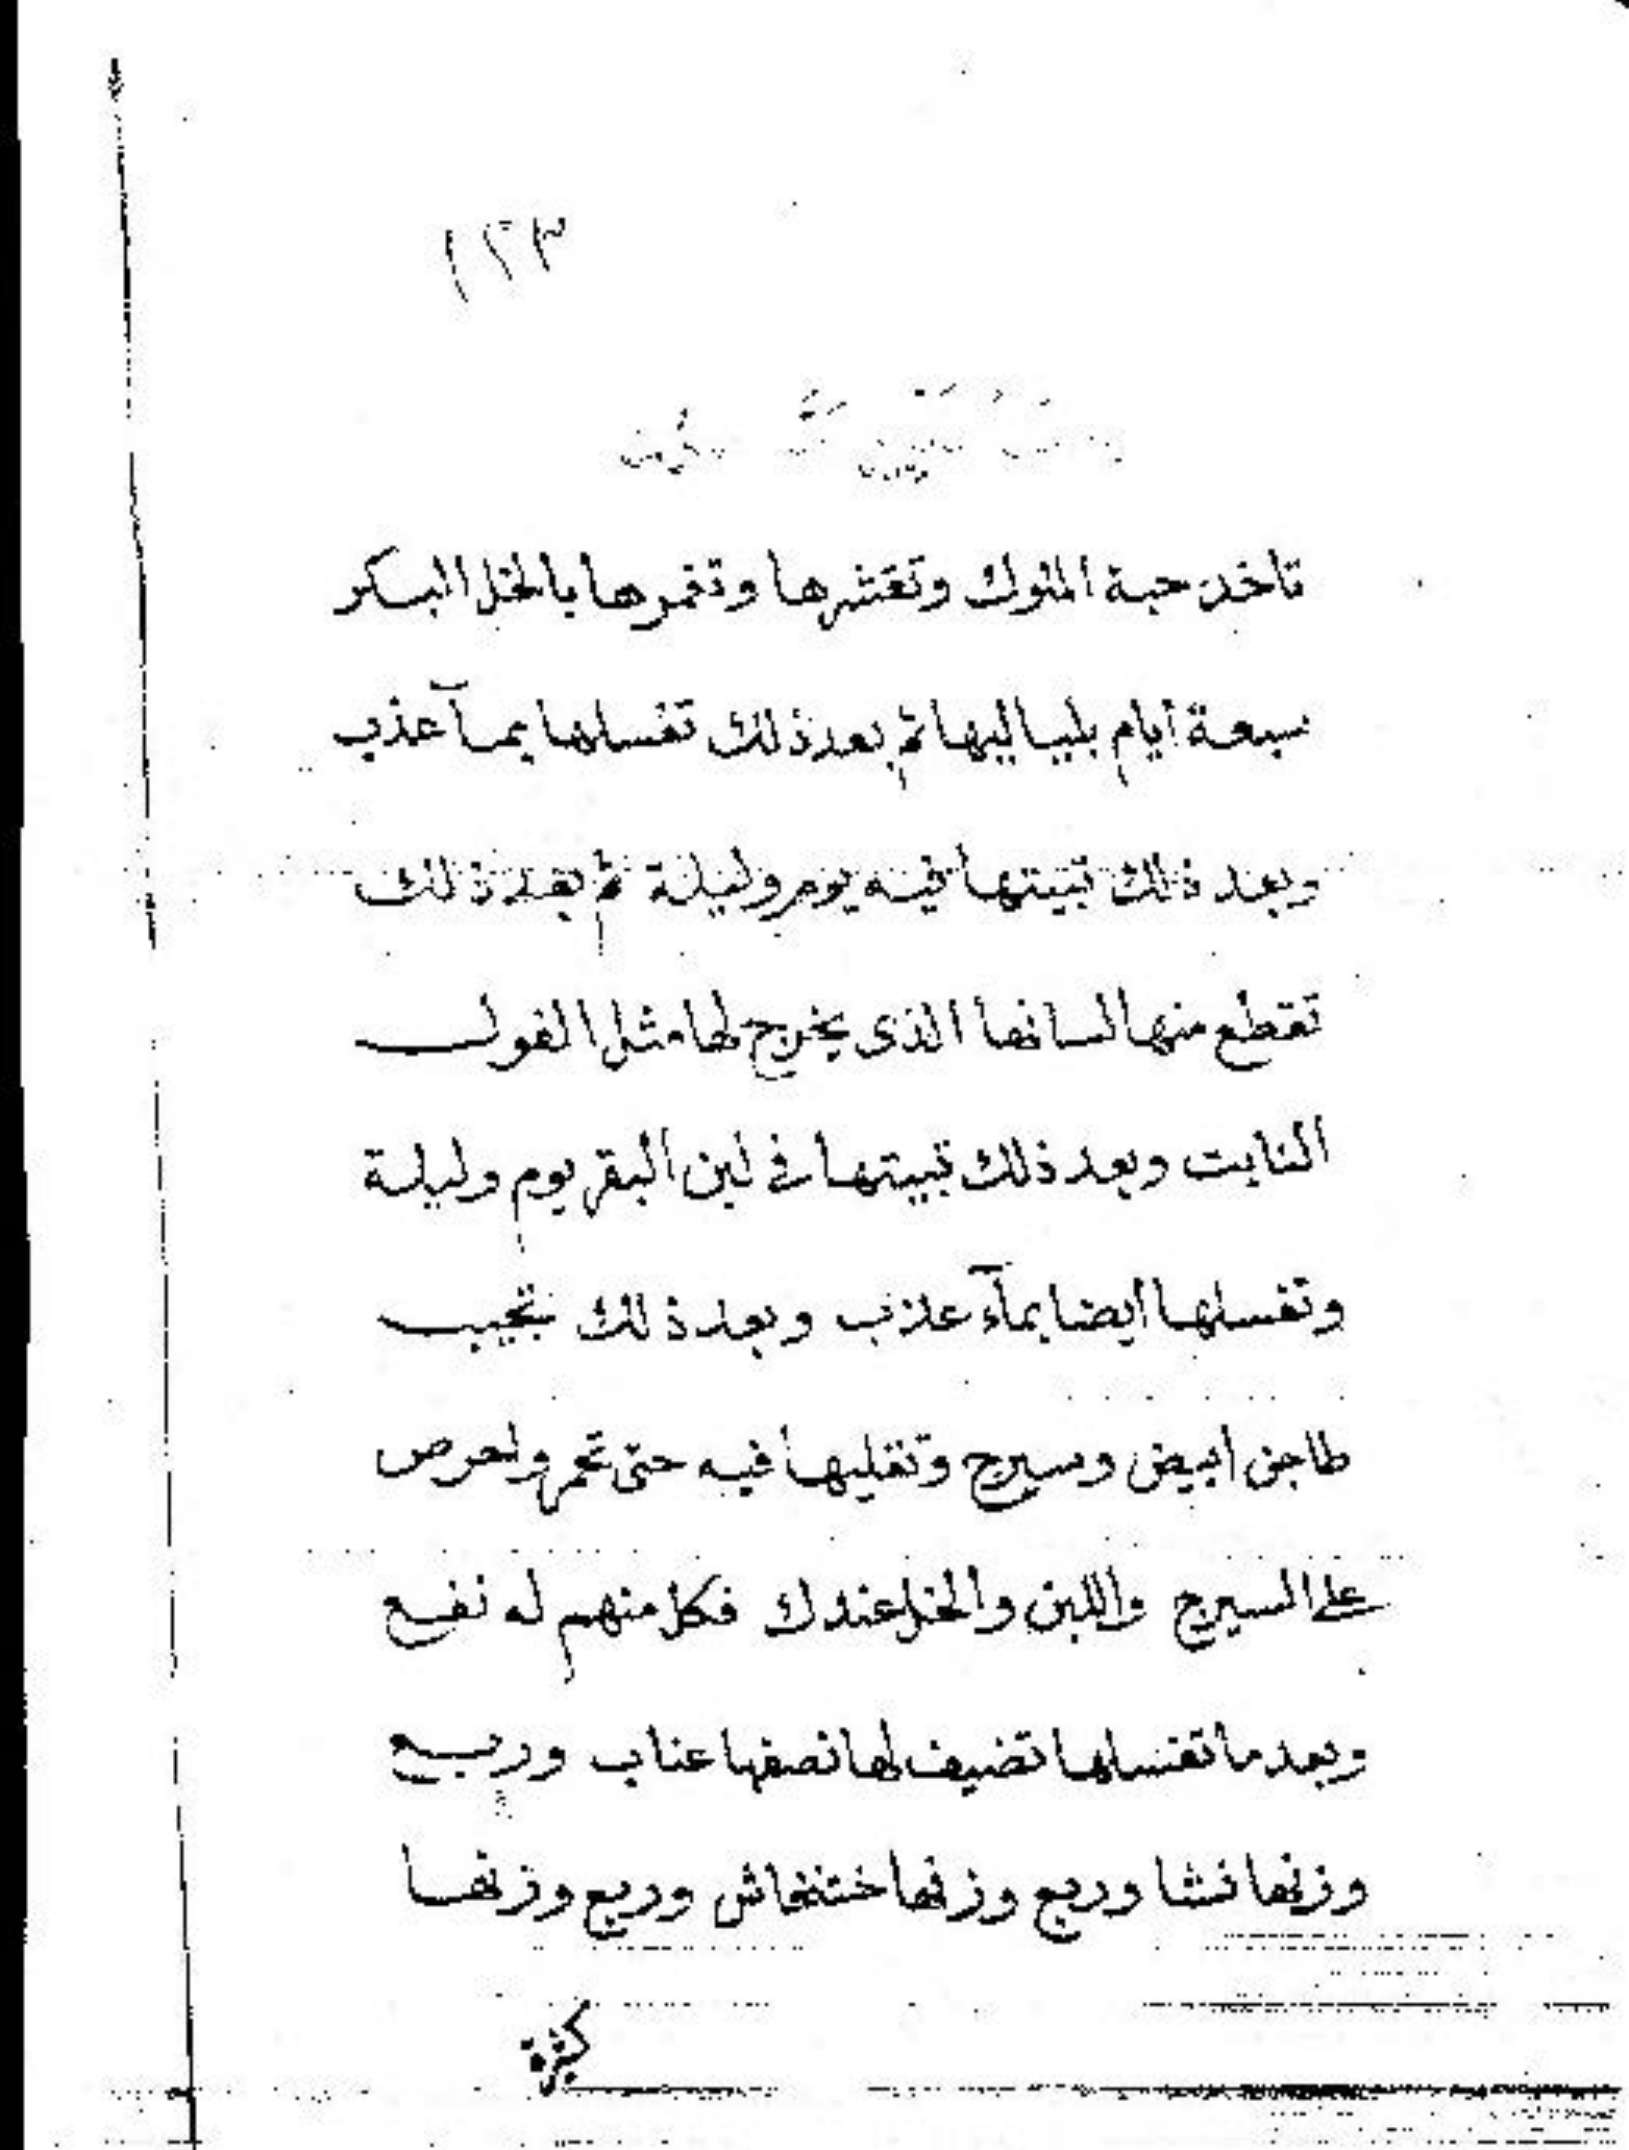 ١٢٣
تاخد حبة الملوك وتقشرها وتغمرها بالخل البكر
سبعة أيام بلياليها ثم بعد ذلك تغسلها بمآ عذب
وبعد ذلك تبيتها فيه يوم وليلة ثم بعد ذلك
تقطع منها لسانها الذى يخرج لها مثل الفول
النابت وبعد ذلك تبيتها فى لبن البقر يوم وليلة
وتغسلها ايضا بمآء عذب وبعد ذلك تجيب
طاجن ابيض وسيرج وتقليها فيه حتى تحمر واحرص
على السيرج واللبن والخل عندك فكل منهم له نفع
وبعد ما تغسلها تضيف لها نصفها عناب وربع
وزنها نشا وربع وزنها خشخاش وربع وزنها
كثيرة